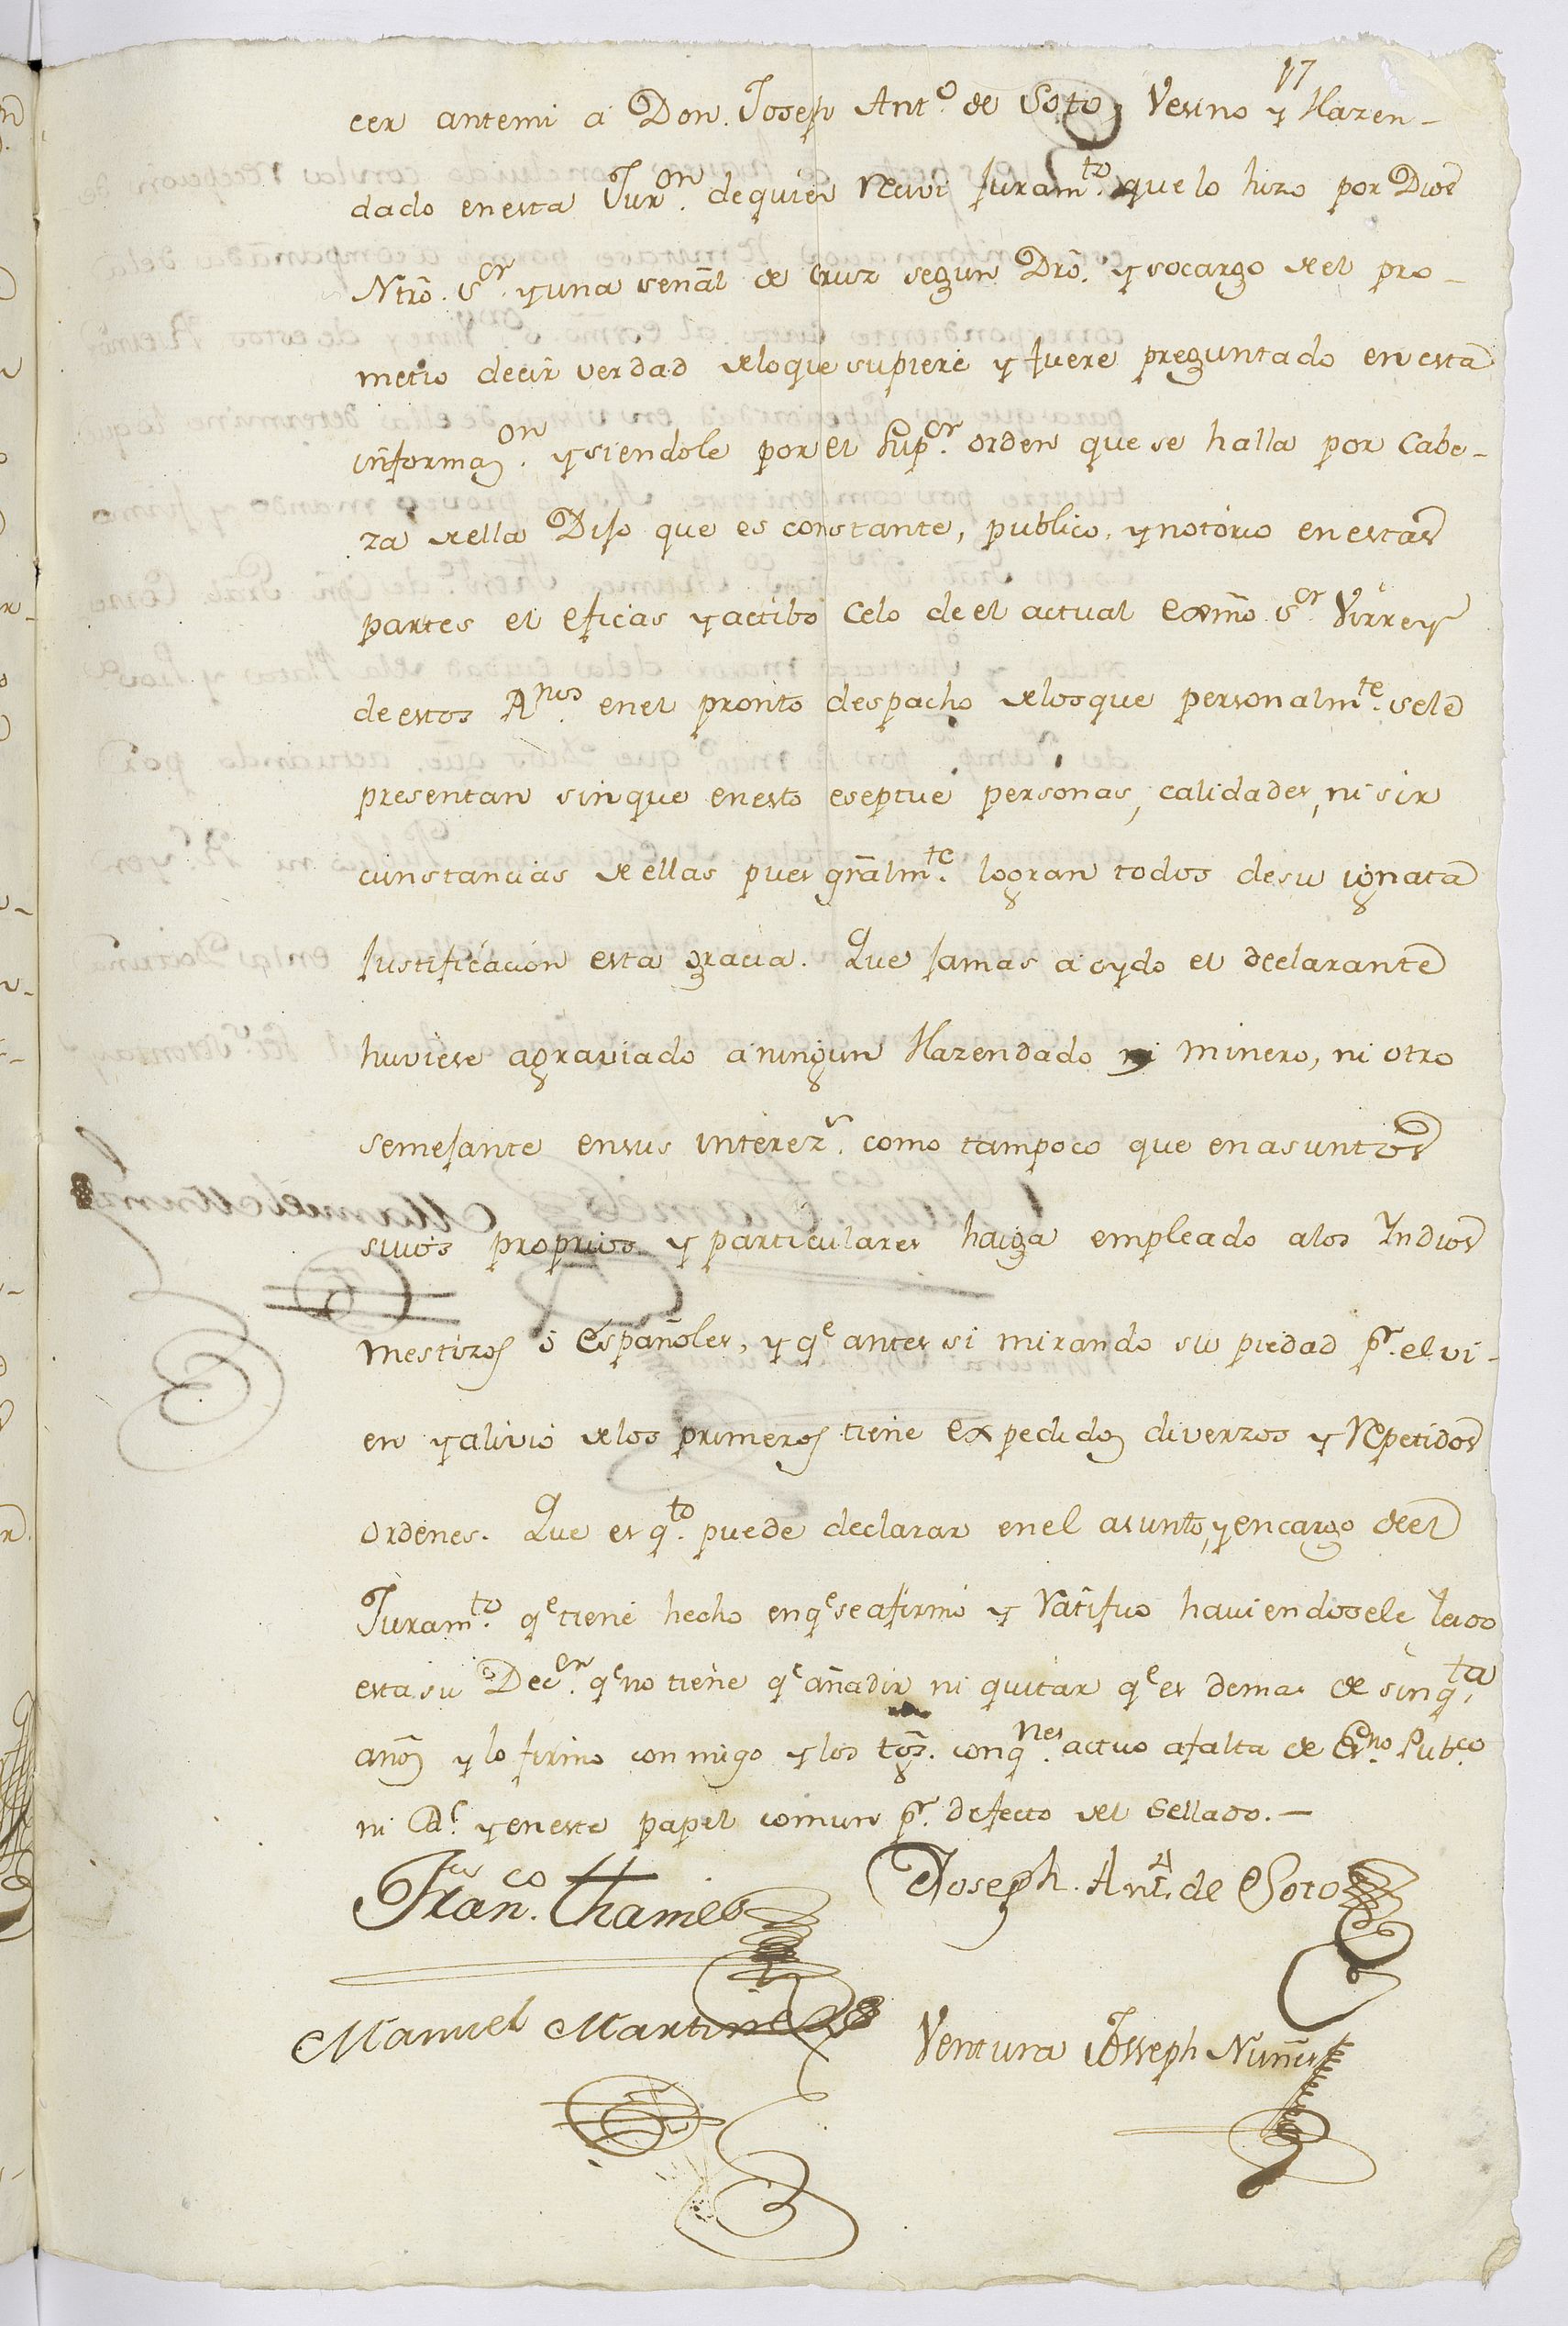 17
cer antemi a Don. Joseph Ant.º de Soto, Vesino y Hazen-
dado en esta Jur.on de quien Recivi Juram.to que lo hizo por Dios
Ntrō. S.or y una señal de Cruz segun Drō. y socargo de el pro-
metio decir verdad de lo que supiere y fuere preguntado en esta
informaz.on y siendole por el Sup.or orden que se halla por Cabe-
za de ella Dijo que es constante, publico, y notorio en estas
partes el eficas y actibo Celo de el actual Exmō. S.or Virrey
de estos R.nos en el pronto despacho de los que personalm.te se le
presentan sin que en esto eseptue personas, calidades, ni sir
cunstancias de ellas pues grālm.te logran todos de su ignata
Justificacion esta gracia. Que Jamas a oydo el declarante
huviese agraviado a ningun Hazendado ni minero, ni otro
semejante en sus interez.s como tampoco que en asuntos
suios propios y particulares haiga empleado a los Yndios
mestizos ô Españoles, y q.e antes si mirando su piedad p.r el vi-
en y alivio de los primeros tiene expedidos diverzos y Repetidos
ordenes. Que es q.to puede declarar en el asunto, y encargo de el
Juram.to q.e tiene hecho en q.e se afirmó y Ratifico haviendosele leido
esta su Dec.on q.e no tiene q.e añadir ni quitar q.e es de mas de sinq.ta
años y lo firmo conmigo y los tgōs. con q.nes actuo a falta de Es.no Pub.co
ni R.l y en este papel comun p.r defecto del Sellado.—
Fran.co Thames
Joseph. Ant.º de Soto
Manuel Martinez
Ventura Josseph Nuñes